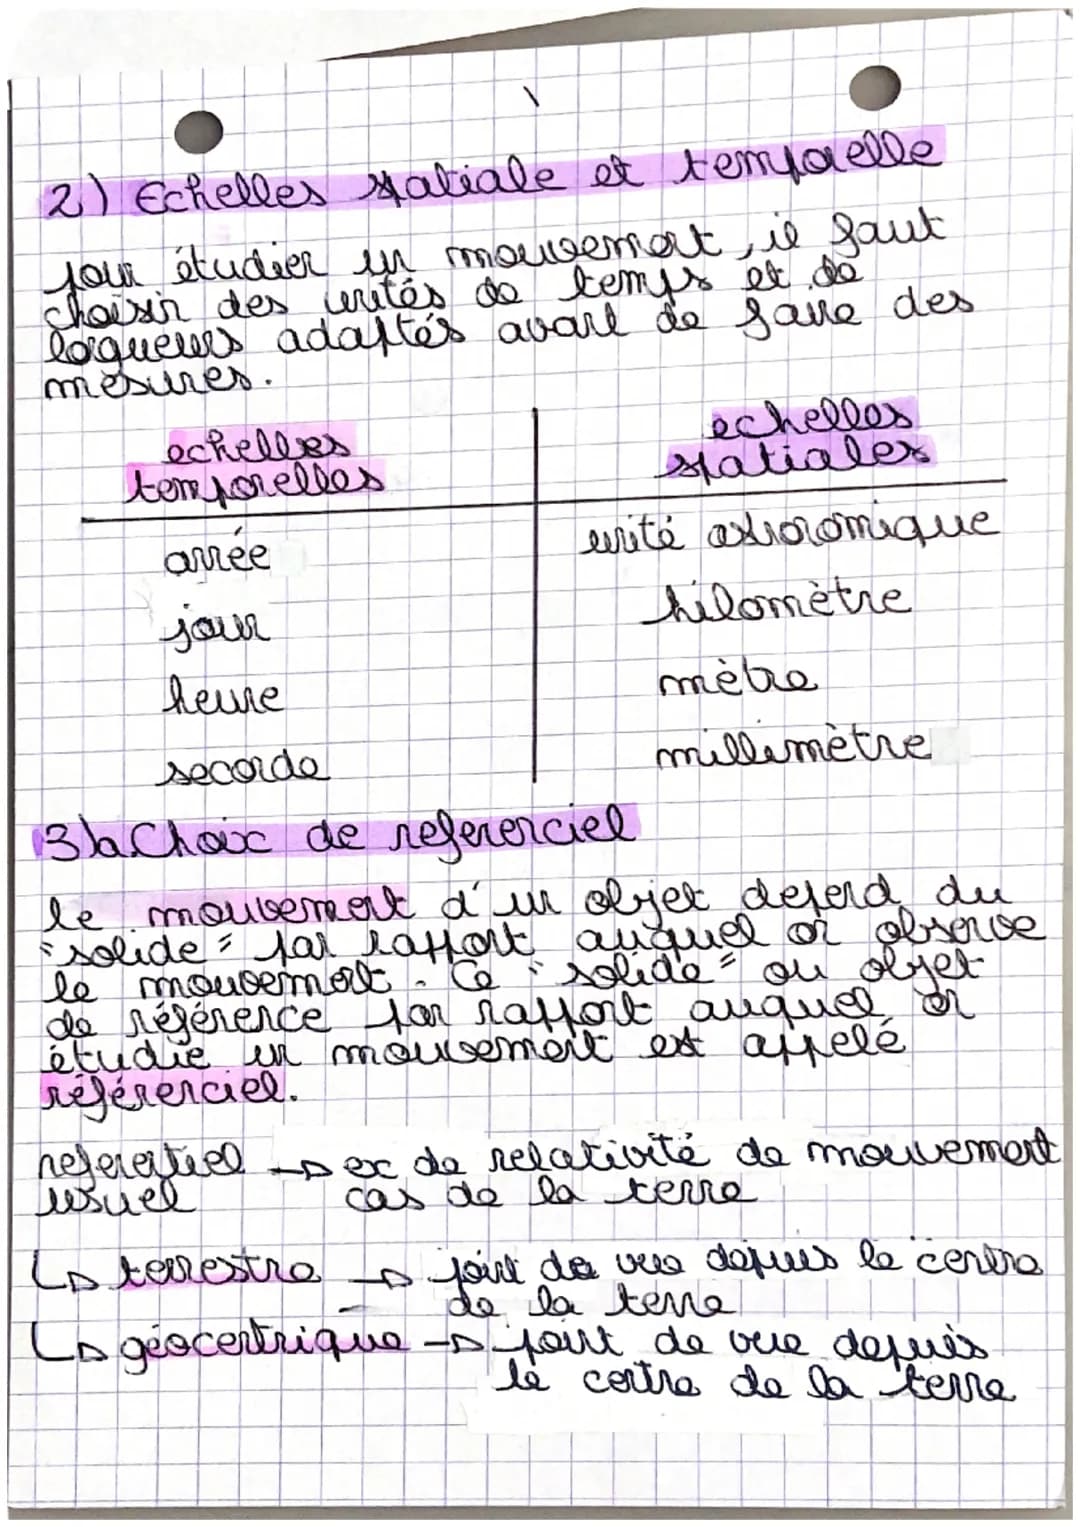 2) Echelles spatiale et temporelle
pour étudier un mouvement, il faut
choisir des unités de temps et de
longueurs adaptés avant de faire des
mesures.
echelles temporelles | echelles spatiales
année | unité astronomique
jour | kilomètre
heure | mètre
seconde | millimètre
3)a.Choix de referenciel
le mouvement d'un objet depend du
"solide" par rapport auquel on observe
le mouvement. Ce "solide" ou objet
de référence par rapport auquel on
étudie un mouvement est appelé
référenciel.
referentiel → ex de relativité de mouvement
usuel cas de la terre
↳ terrestre → point de vue depuis le centre
de la terre
↳ géocentrique → point de vue depuis
le centre de la terre